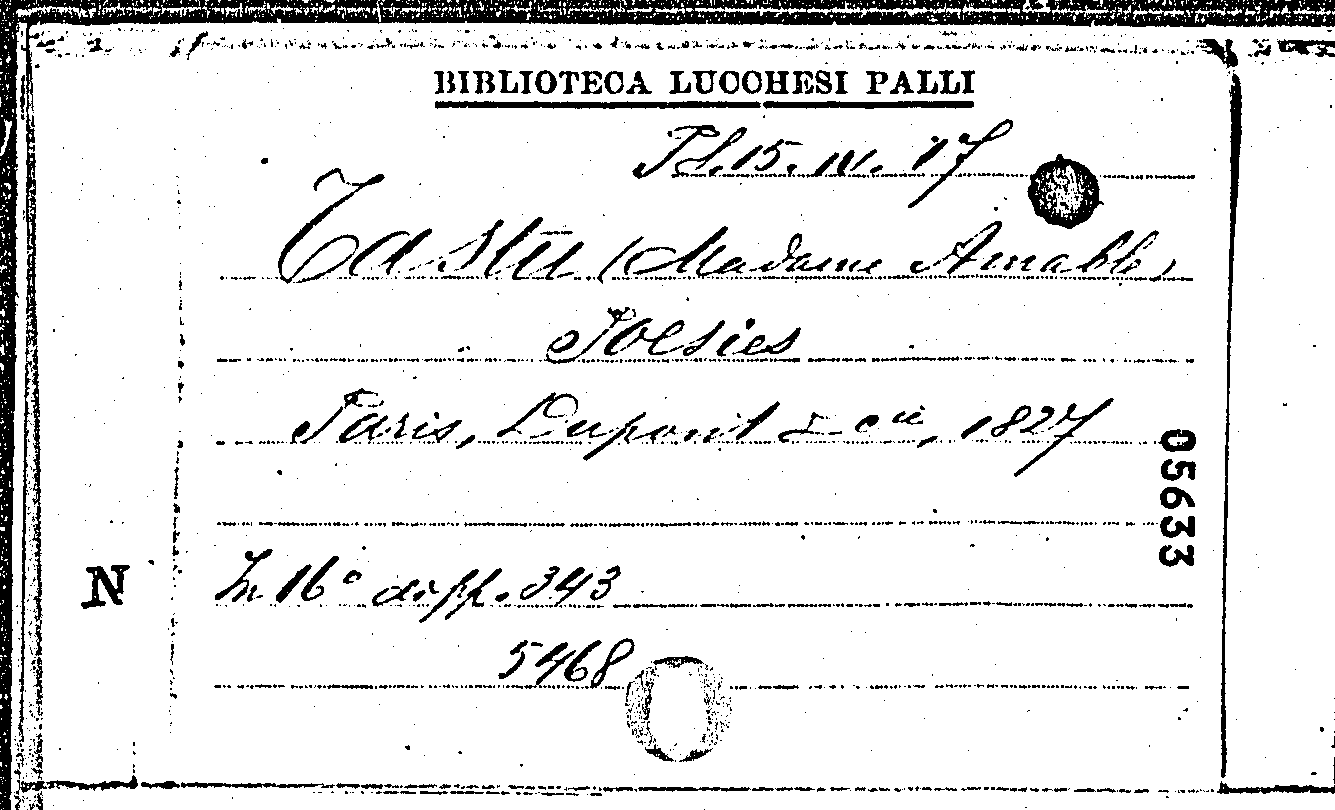 BIBLIOTECA LUCCHESI PALLI
Pl. 15. IV. 17
Tastu (Madame Amable)
Poesies
Paris, Dupont & Cie, 1827
05633
N
In 16° di pp. 343
5468